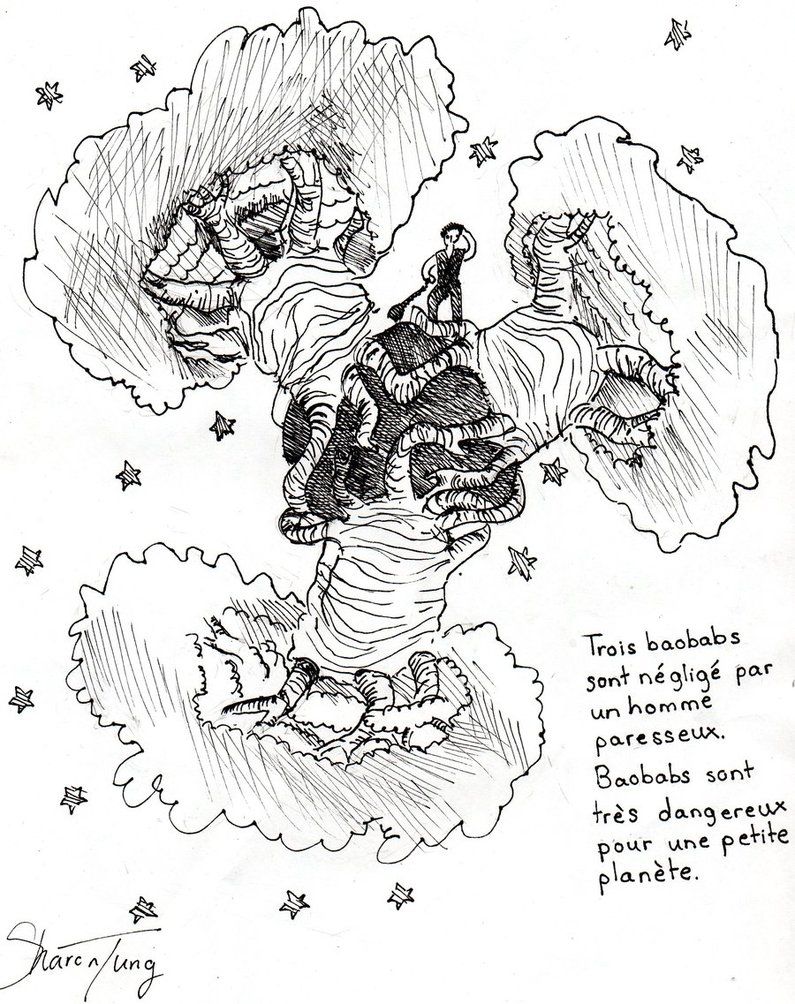 Trois baobabs
sont négligé par
un homme
paresseux.
Baobabs sont
très dangereux
pour une petite
planète.
Sharon Tung